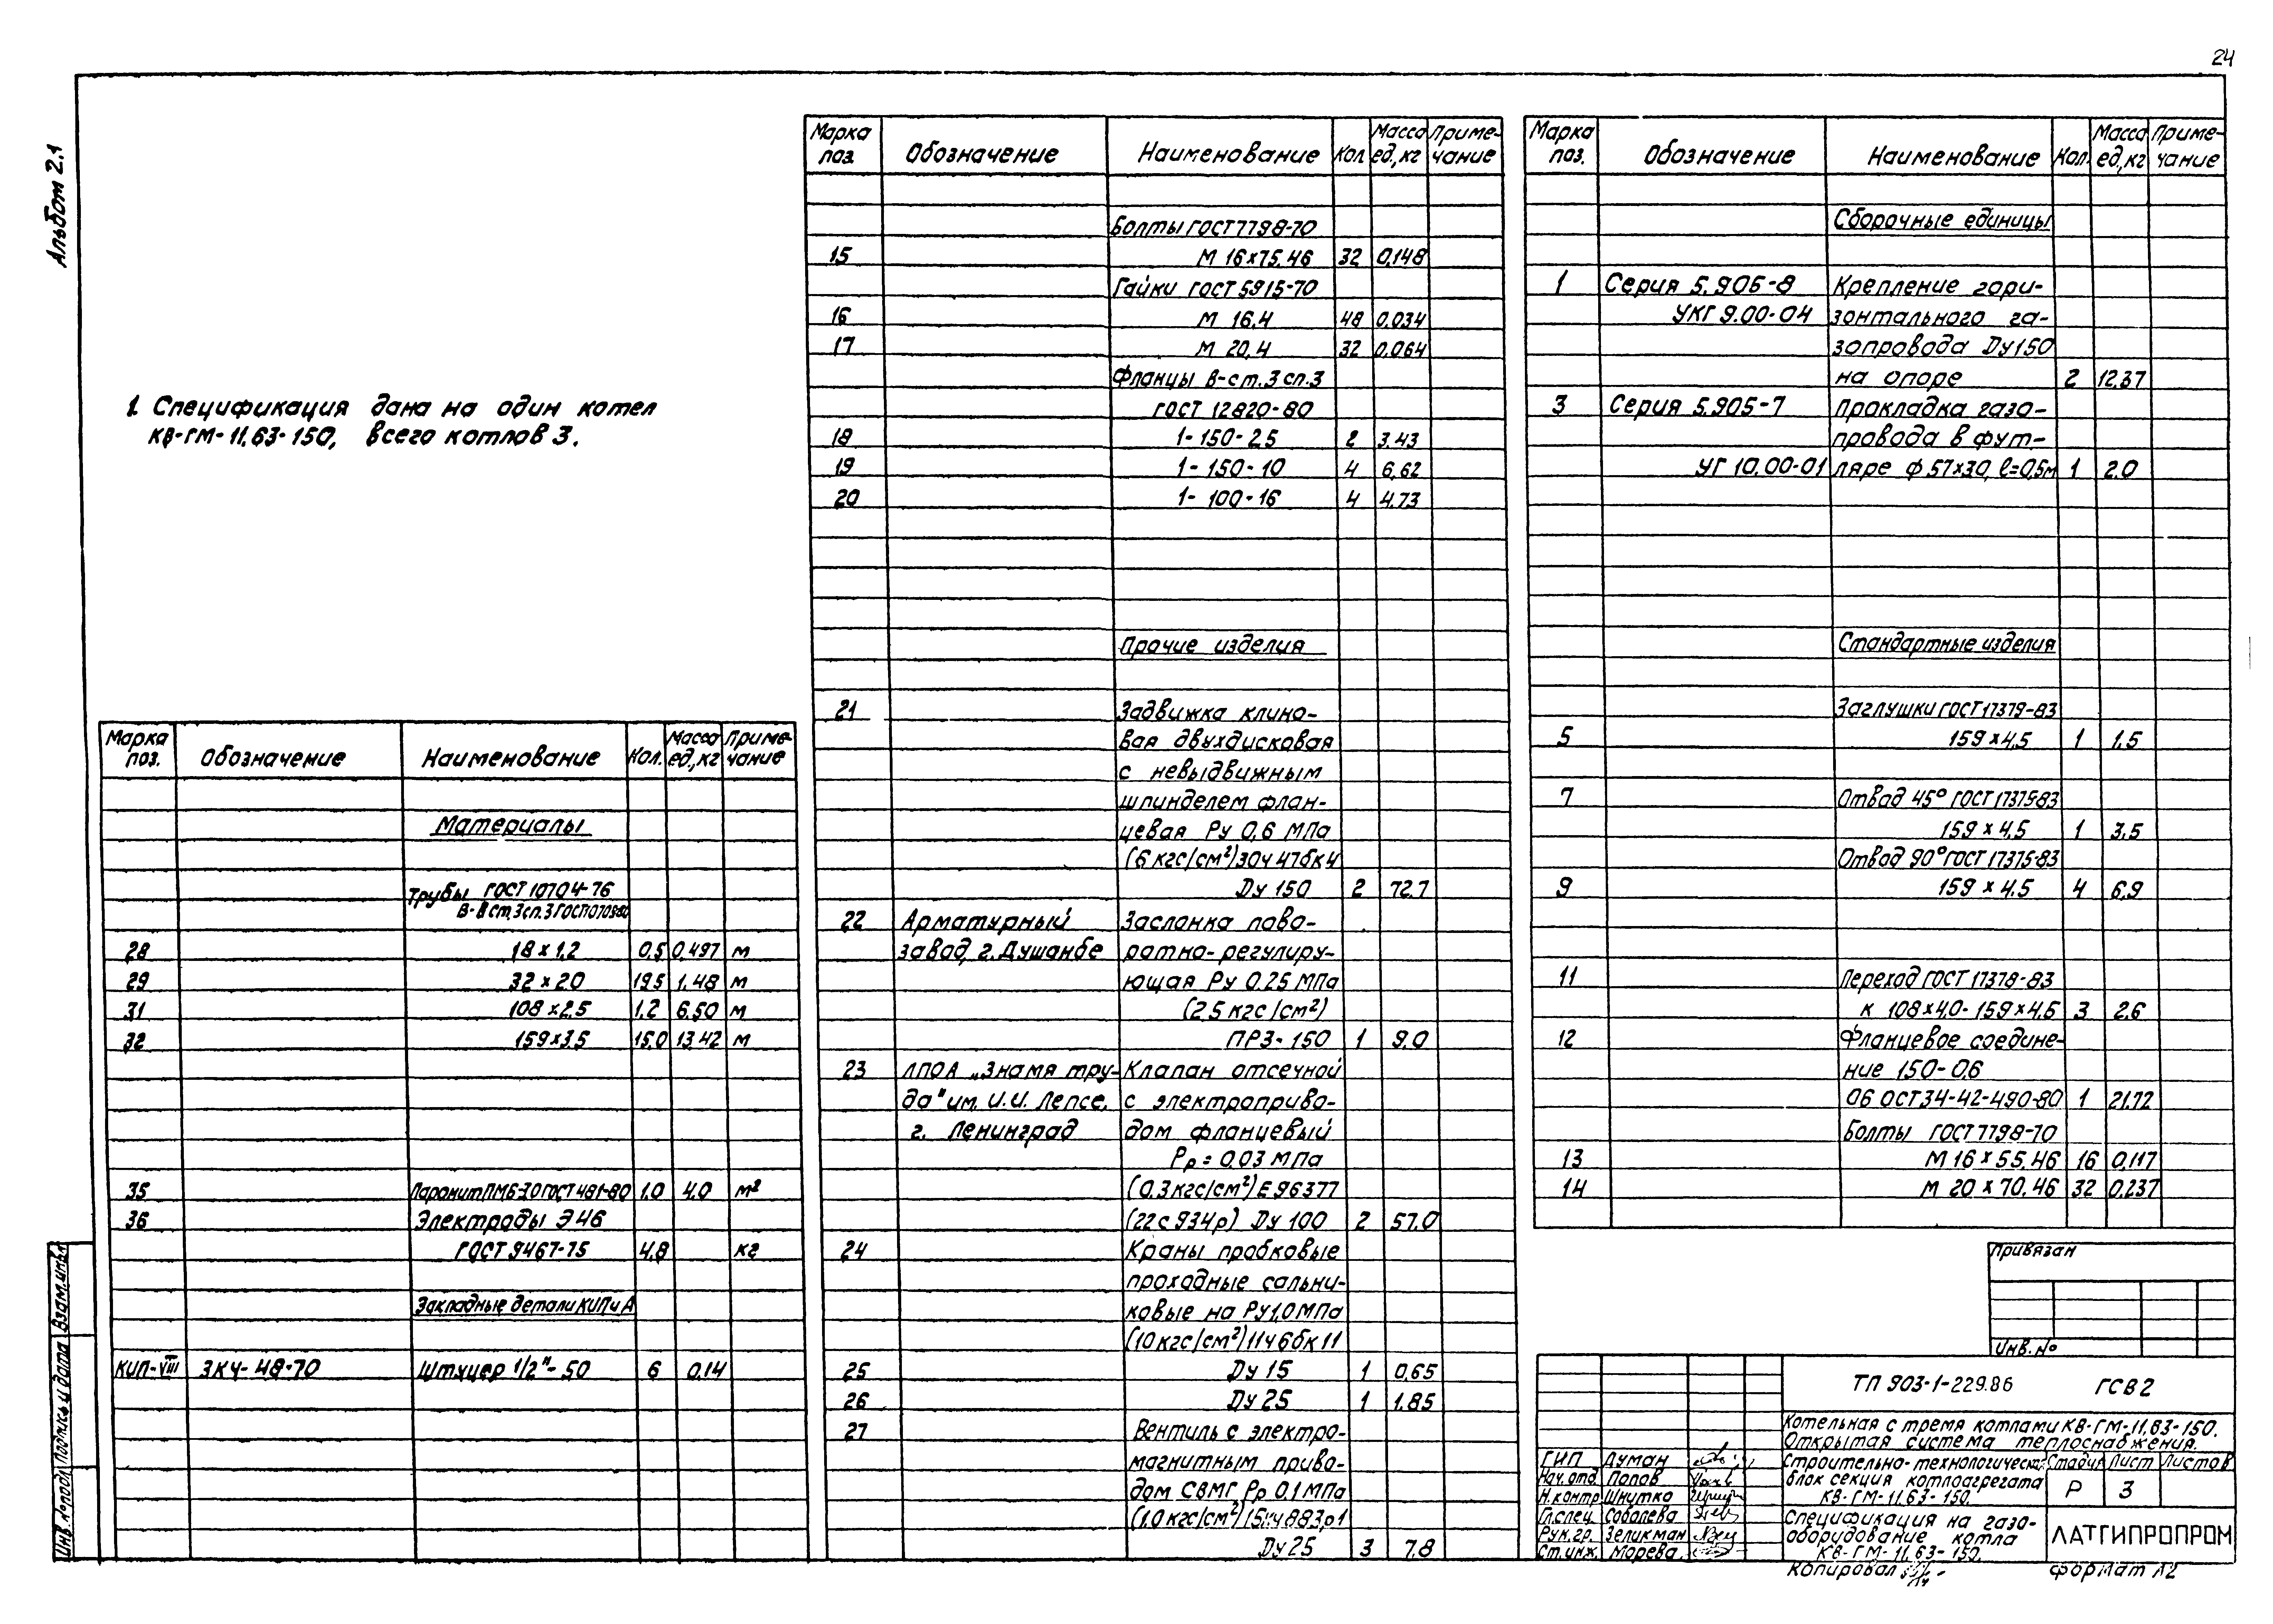 24
Альбом 2.1
1. Спецификация дана на один котел
КВ-ГМ-11,63-150, всего котлов 3.
Марка поз. Обозначение Наименование Кол. Масса ед.,кг Примечание
Материалы
Трубы ГОСТ 10704-76
28 18×1,2 0,5 0,497 м
29 32×2,0 19,5 1,48 м
31 108×2,5 1,2 6,50 м
32 159×3,5 15,0 13,42 м
35 Паронит ПМБ-3,0 ГОСТ 481-80 1,0 4,0 м²
36 Электроды Э46
ГОСТ 9467-75 4,8 кг
Закладные детали КИПиА
КИП-VIII ЗКЧ-48-70 Штуцер 1/2"-50 6 0,14
Марка поз. Обозначение Наименование Кол Масса ед,кг Примечание
Болты ГОСТ 7798-70
15 М 16×75.46 32 0,148
Гайки ГОСТ 5915-70
16 М 16.4 48 0,034
17 М 20.4 32 0,064
Фланцы В-ст.3 сп.3
ГОСТ 12820-80
18 1-150-2,5 2 3,43
19 1-150-10 4 6,62
20 1-100-16 4 4,73
Прочие изделия
21 Задвижка клино-
вая двухдисковая
с невыдвижным
шпинделем флан-
цевая Ру 0,6 МПа
(6 кгс/см²) 30ч 47бк4
Ду 150 2 72,7
22 Арматурный Заслонка пово-
завод, г. Душанбе ротно-регулиру-
ющая Ру 0,25 МПа
(2,5 кгс/см²)
ПРЗ-150 1 9,0
23 ЛПОА „Знамя тру- Клапан отсечной
да" им. И.И. Лепсе, с электроприво-
г. Ленинград дом фланцевый
Рр = 0,03 МПа
(0,3 кгс/см²) Е 96377
(22с 934р) Ду 100 2 57,0
24 Краны пробковые
проходные сальни-
ковые на Ру1,0МПа
(10 кгс/см²) 11ч 6бк 11
25 Ду 15 1 0,65
26 Ду 25 1 1,85
27 Вентиль с электро-
магнитным приво-
дом СВМГ Рр 0,1 МПа
(1,0 кгс/см²) 15кч 883р1
Ду 25 3 7,8
Марка поз. Обозначение Наименование Кол. Масса ед,кг Примечание
Сборочные единицы
1 Серия 5.905-8 Крепление гори-
УКГ 9.00-04 зонтального га-
зопровода Ду150
на опоре 2 12,37
3 Серия 5.905-7 Прокладка газо-
провода в фут-
УГ 10.00-01 ляре ф 57×3,0, l=0,5м 1 2,0
Стандартные изделия
Заглушки ГОСТ 17379-83
5 159×4,5 1 1,5
7 Отвод 45° ГОСТ 17375-83
159×4,5 1 3,5
Отвод 90° ГОСТ 17375-83
9 159×4,5 4 6,9
11 Переход ГОСТ 17378-83
К 108×4,0-159×4,5 3 2,6
12 Фланцевое соедине-
ние 150-0,6
06 ОСТ 34-42-490-80 1 21,72
Болты ГОСТ 7798-70
13 М 16×55.46 16 0,117
14 М 20×70.46 32 0,237
Привязан
Инв.№
ТП 903-1-229.86 ГСВ2
Котельная с тремя котлами КВ-ГМ-11,63-150.
Открытая система теплоснабжения.
ГИП Думан
Нач.отд. Попов
Н.контр Шнутко
Гл.спец. Соболева
Рук.гр. Зеликман
Ст.инж. Морева
Строительно-технологический
блок секция котлоагрегата
КВ-ГМ-11,63-150.
Стадия Лист Листов
Р 3
Спецификация на газо-
оборудование котла
КВ-ГМ-11,63-150.
ЛАТГИПРОПРОМ
Копировал
формат А2
Инв.№подл. Подпись и дата Взам.инв.№